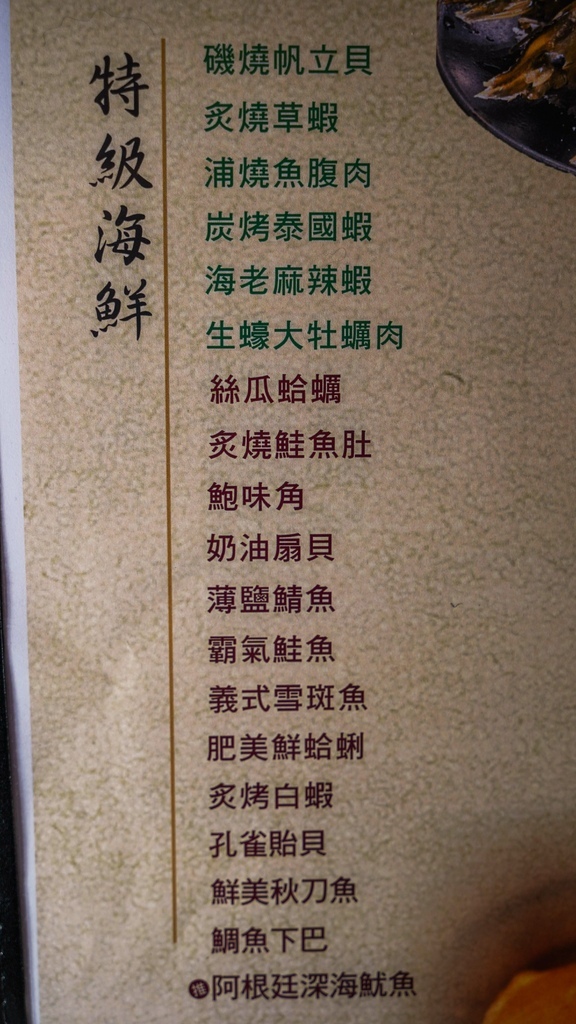 特級海鮮
磯燒帆立貝
炙燒草蝦
浦燒魚腹肉
炭烤泰國蝦
海老麻辣蝦
生蠔大牡蠣肉
絲瓜蛤蠣
炙燒鮭魚肚
鮑味角
奶油扇貝
薄鹽鯖魚
霸氣鮭魚
義式雪斑魚
肥美鮮蛤蜊
炙烤白蝦
孔雀貽貝
鮮美秋刀魚
鯛魚下巴
推阿根廷深海魷魚